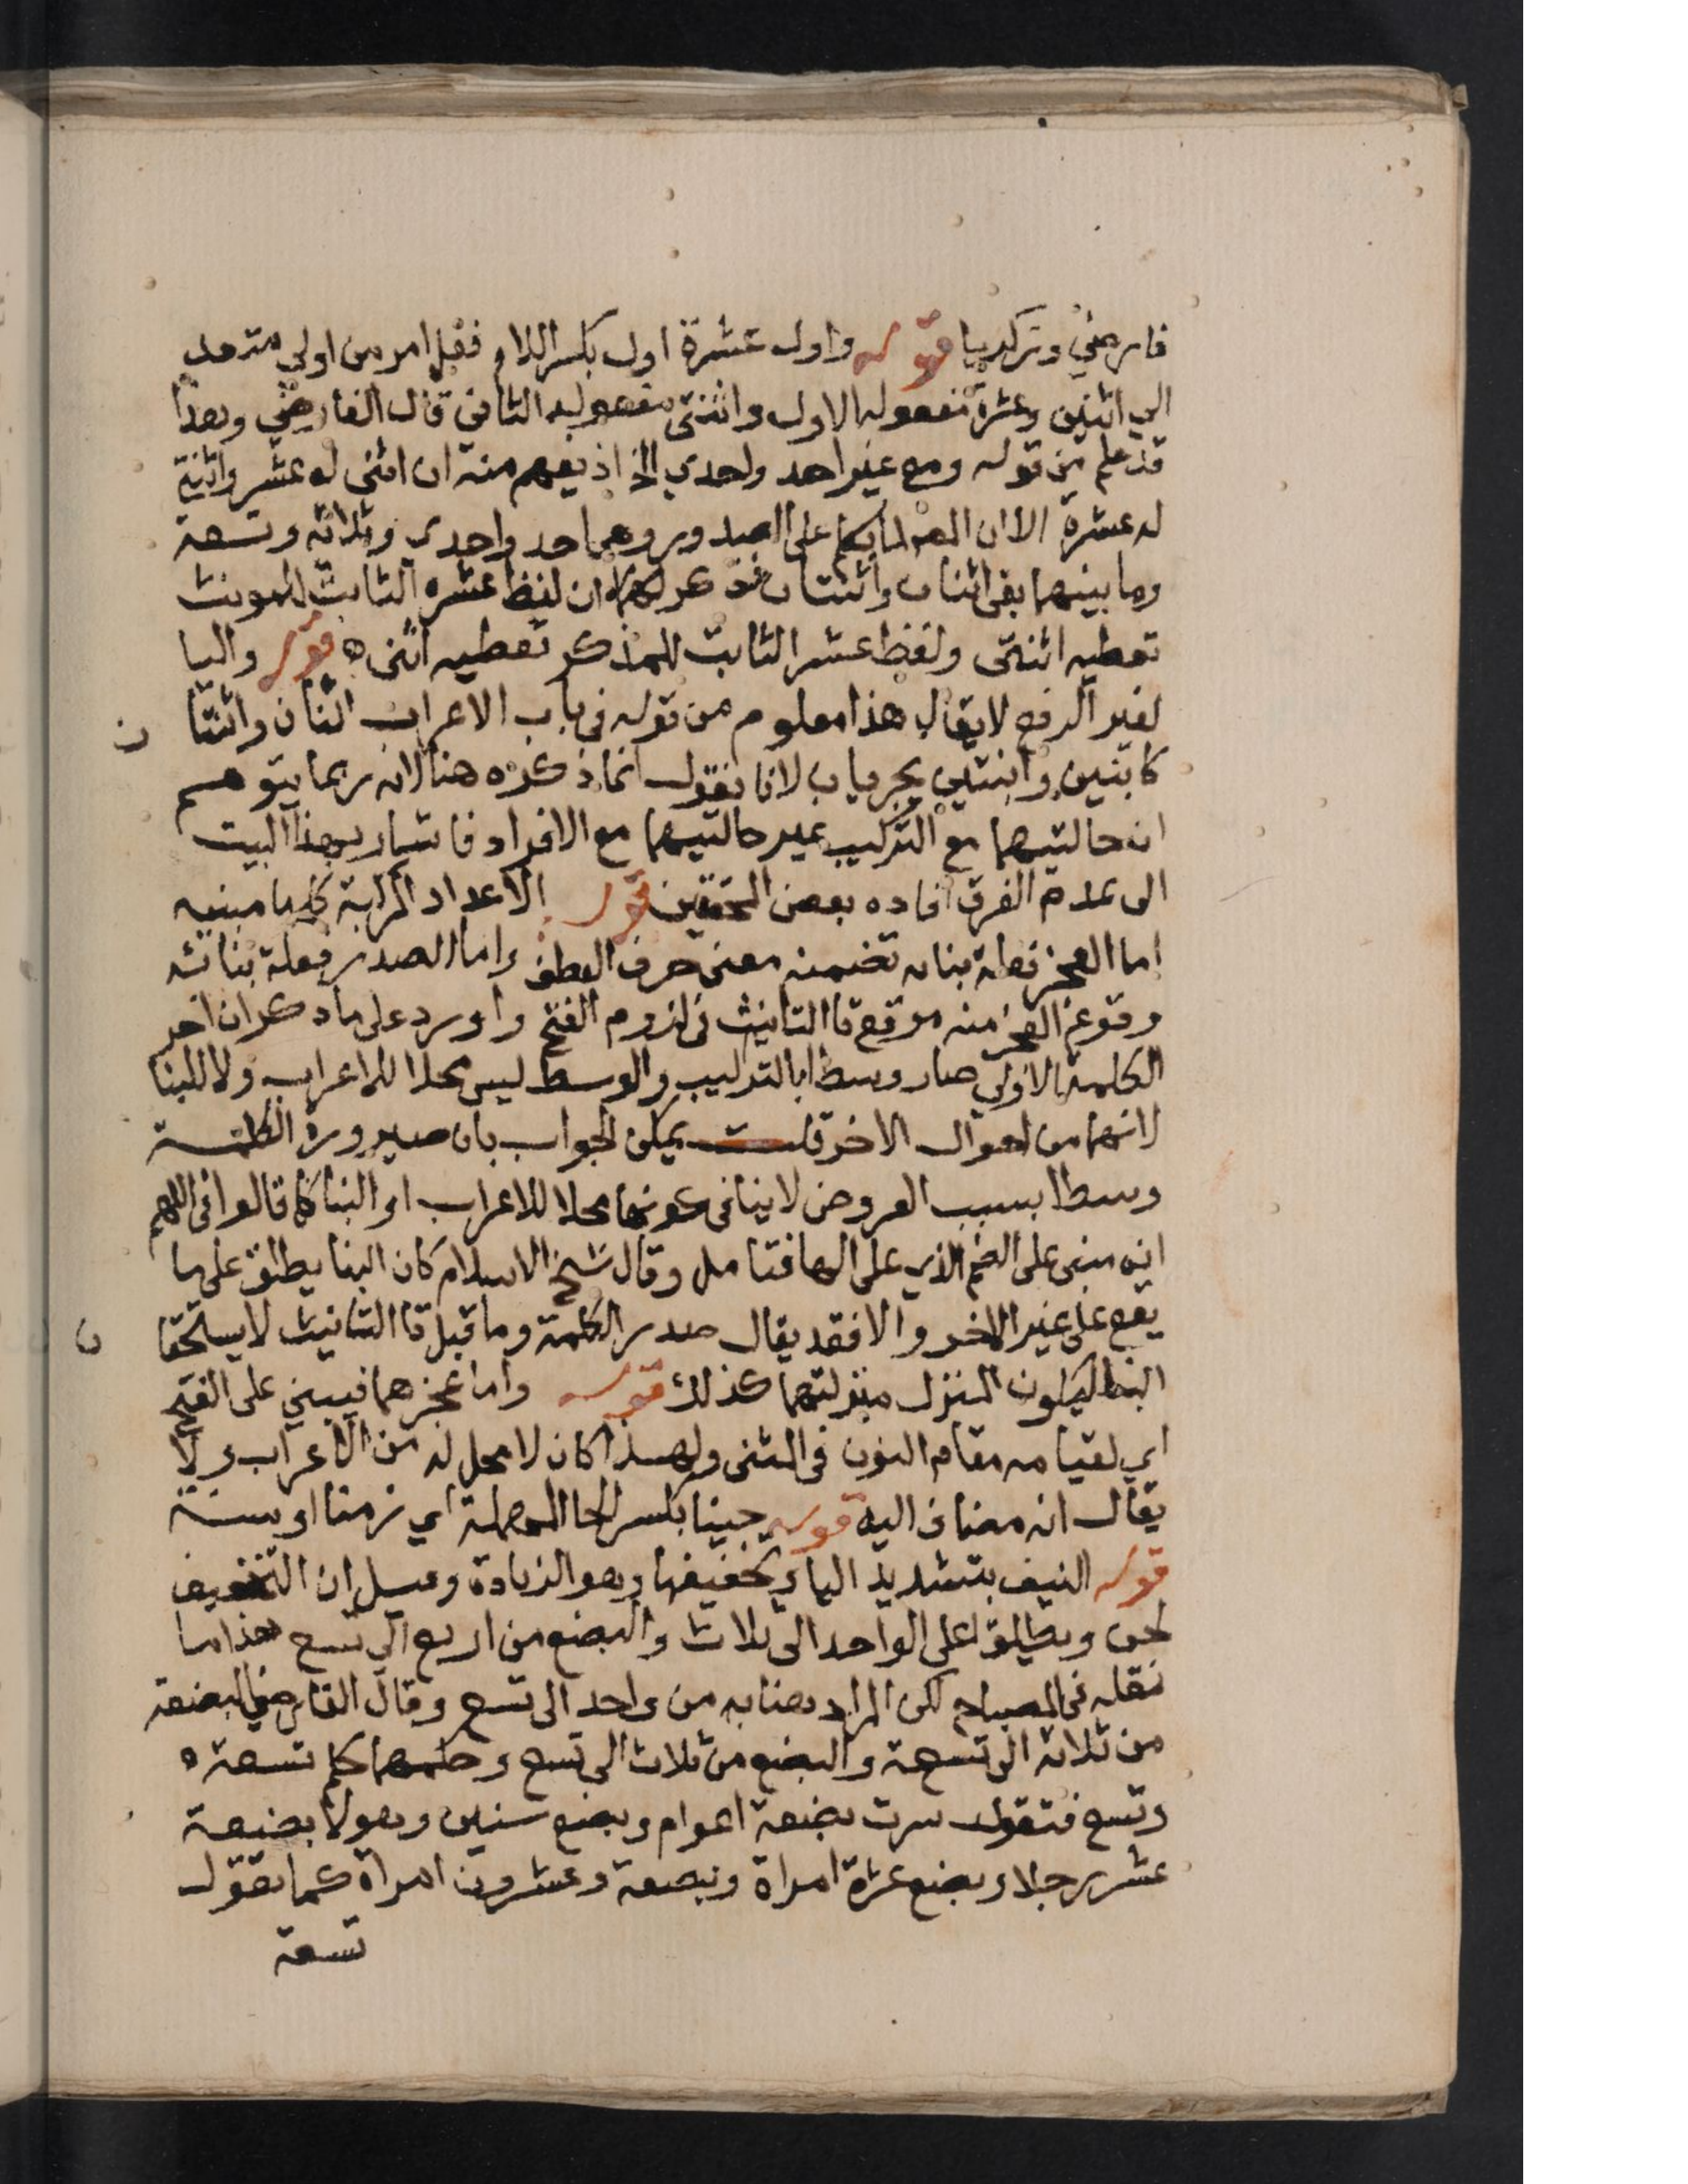 فارضي وتركريا قوله واول عشرة اول بكسر اللام فعل امر من اولي متعد
الي اثنين وعشرة مفعوله الاول واثنتي مفعوله الثاني قال الفارضي وهذا
قد علم من قوله ومع غير احد واحدي الخ اذ يفهم منه ان اثني له عشر واثنتي
له عشرة الا ان المص لما تكلم على الصدور وهما احد واحدي وثلاثة وتسعة
وما بينهما بقي اثنان واثنتان فذكر لهما ان لفظ عشره الثابت للمونث
تعطيه اثنتي ولفظ عشر الثابت للمذكر تعطيه اثني ه قوله واليا
لغير الرفع لا يقال هذا معلوم من قوله في باب الاعراب اثنان واثنتان
كابنين وابنتين يجريان لانا نقول انما ذكره هنا لانه ربما يتوهم
ان حالتيهما مع التركيب غير حالتيهما مع الافراد فاشار بهذا البيت
الى عدم الفرق افاده بعض المحققين قوله الاعداد المركبة كلها مبنيه
اما العجز فعلة بنائه تضمنه معنى حرف العطف واما الصدر فعلة بنائه
وقوع العجز منه موقع تا التانيث في لزوم الفتح واورد على ما ذكر ان اخر
الكلمة الاولي صار وسطا بالتركيب والوسط ليس محلا للاعراب ولا للبنا
لانهما من احوال الاخر قلت يمكن الجواب بان صيرورة الكلمة
وسطا بسبب العروض لا ينافي كونها محلا للاعراب او البنا كما قالوا في اللهم
انه مبنى على الضم الذي على الها فتامل وقال شيخ الاسلام كان البنا يطلق على ما
يقع على غير الاخر والا فقد يقال صدر الكلمة وما قبل تا التانيث لا يستحقان
البنا ليكون المنزل منزلتهما كذلك قوله واما عجزهما فيبني على الفتح
اي لقيامه مقام النون في المثنى ولهذا كان لا محل له من الاعراب ولا
يقال انه مضاف اليه قوله حينا بكسر الحا المهملة اي زمنا او سنة
قوله النيف بتشديد اليا وتخفيفها وهو الزيادة وقيل ان التخفيف
لحن ويطلق على الواحد الى ثلاث والبضع من اربع الي تسع هذا ما
نقله في المصباح لكن المراد هنا به من واحد الى تسع وقال الفارضي البضعة
من ثلاثة الى تسعة والبضع من ثلاث الى تسع وحكمهما كم تسعة ه
وتسع فتقول سرت بضعة اعوام وبضع سنين وهولا بضعة
عشر رجلا وبضع عشرة امراة وبضعة وعشرون امراة كما تقول
تسعة